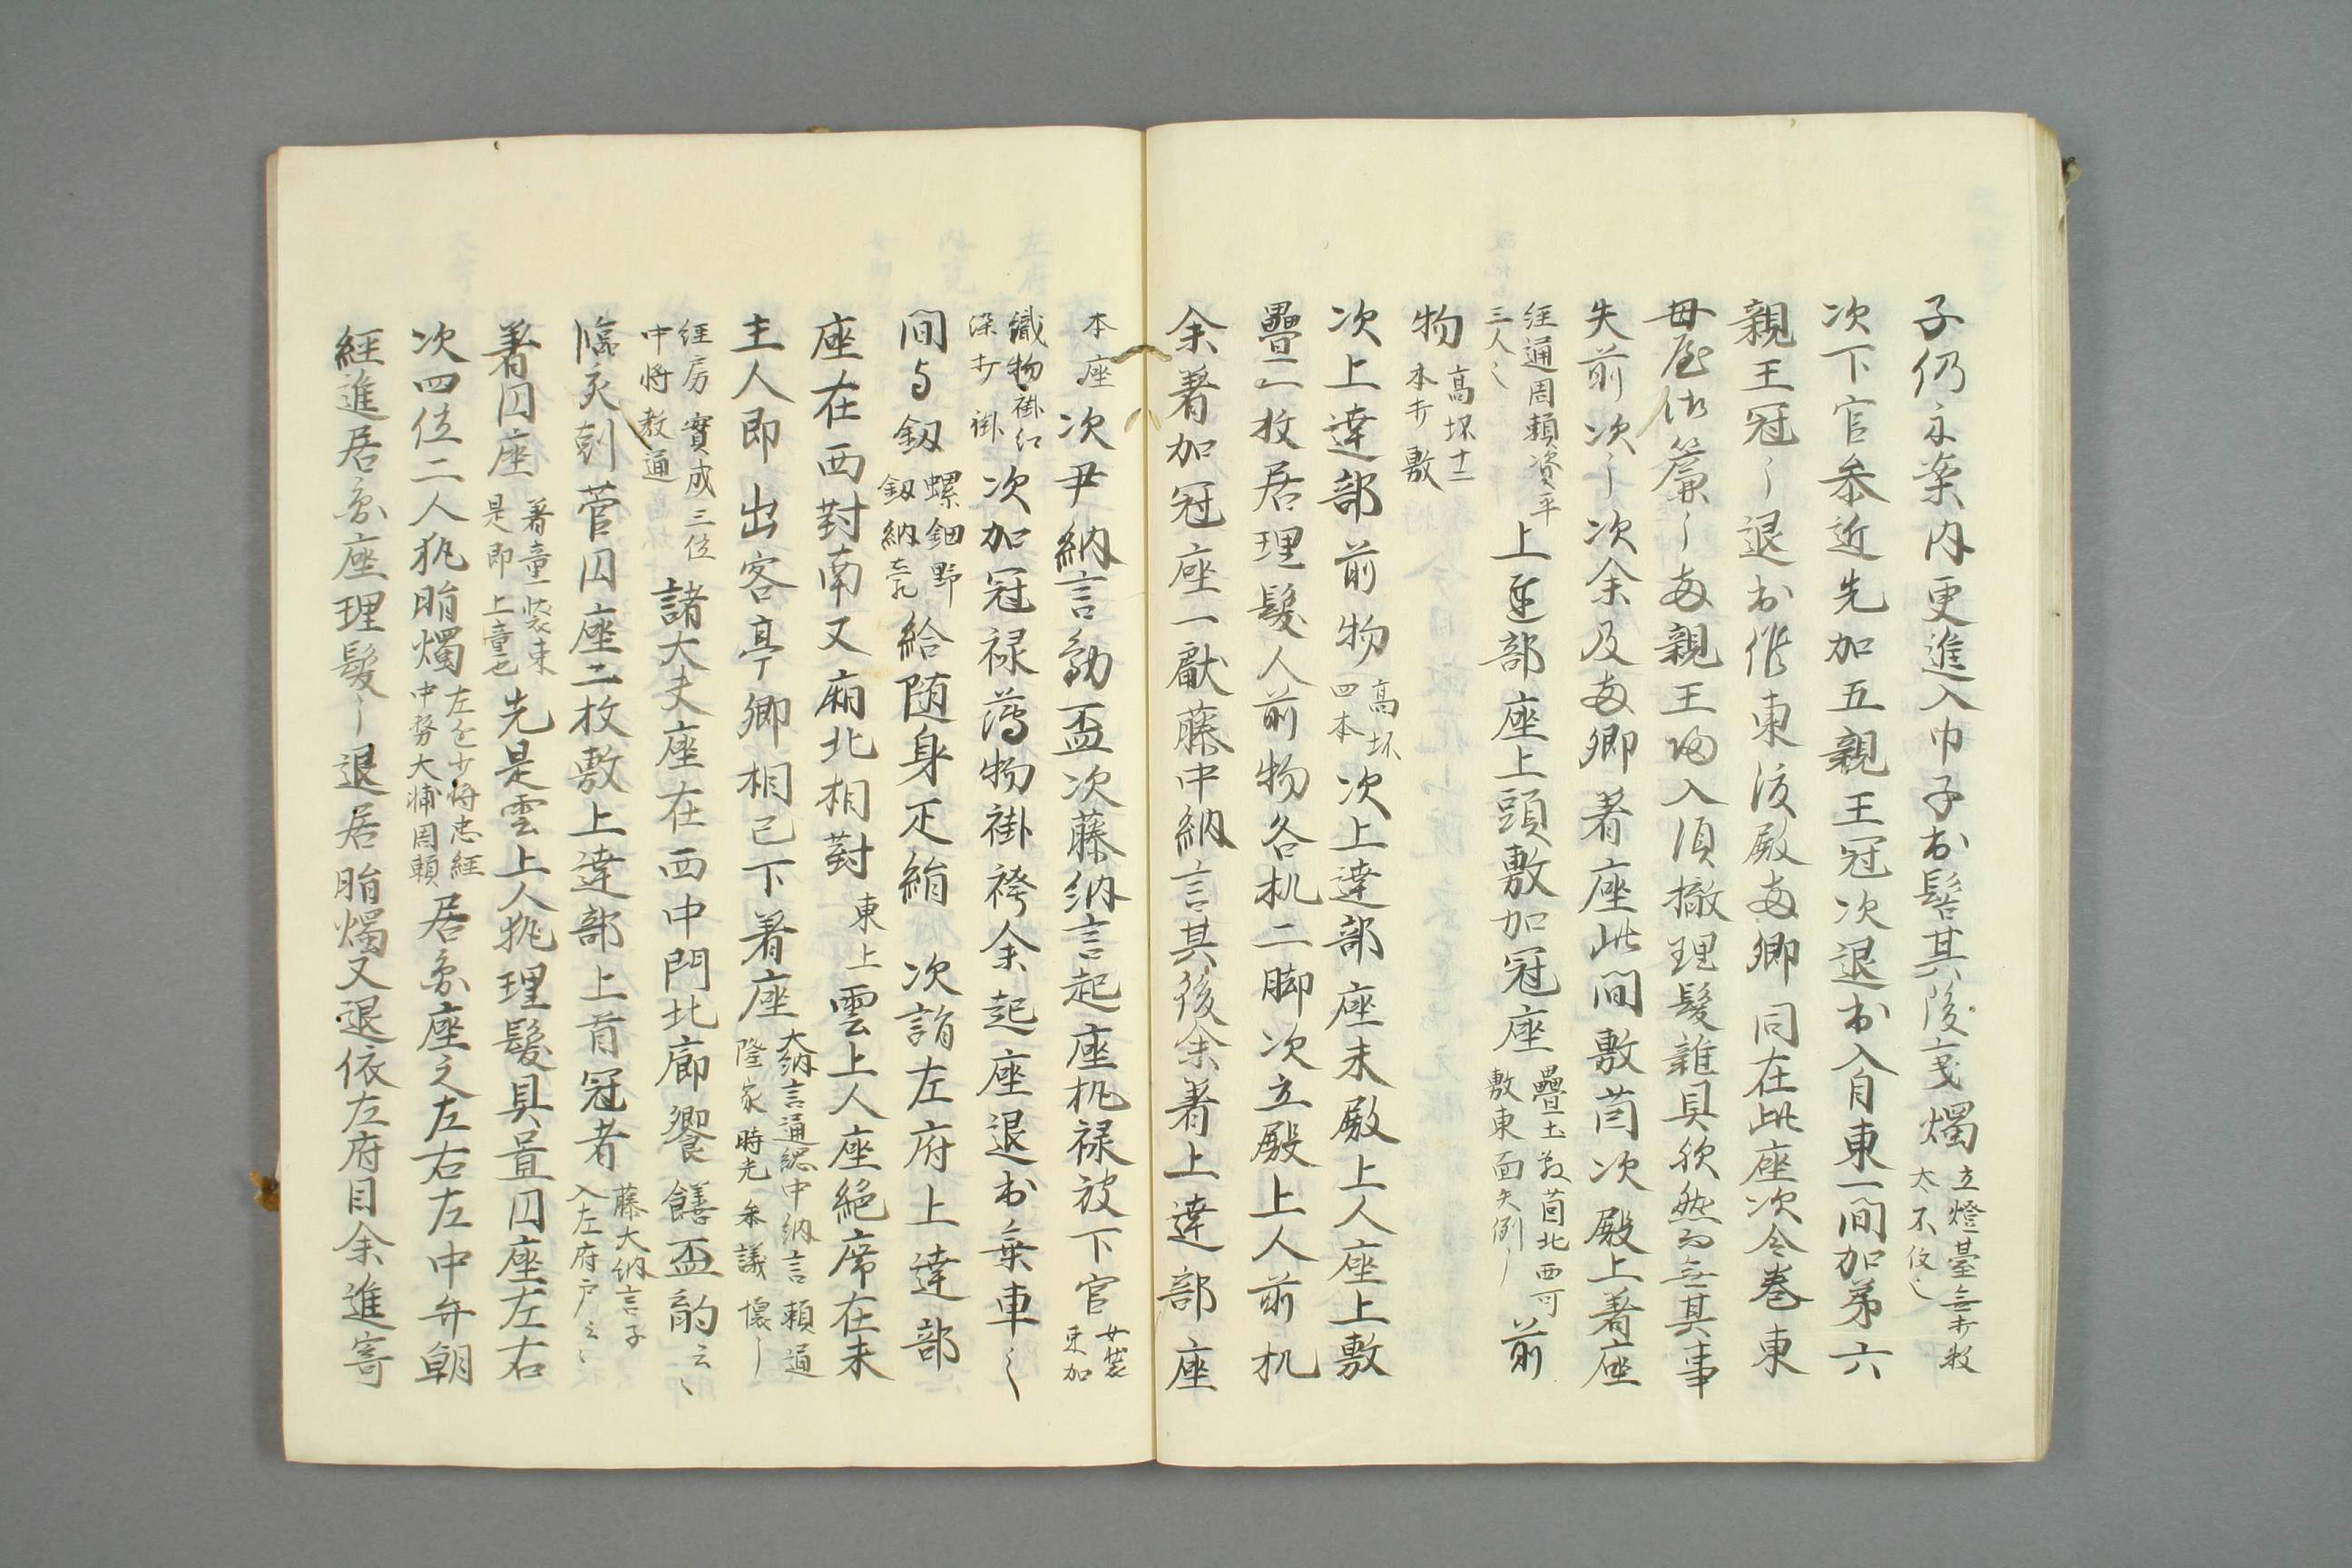 子仍示案内更進入巾子出髻其後突燭立燈臺無打敷
太不便〻
次下官参近先加五親王冠次退出入自東一間加第六
親王冠〻退出候東渡殿両卿同在此座次令巻東
母屋依簾〻両親王帰入須撤理髪雑具欤然而無其事
失前次〻次余及両卿着座此間敷茵次殿上着座
経通周頼資平
三人〻
上達部座上頭敷加冠座疊土敷茵北西可
敷東面失例〻
前
物高坏十二
本打敷
次上達部前物高坏
四本
次上達部座末殿上人座上敷
疊一枚居理髪人前物各机二脚次立殿上人前机
余着加冠座一献藤中納言其後余著上達部座
本座次尹納言勧盃次藤納言起座執禄被下官女装
束加
織物褂紅
染打褂
次加冠禄薄物褂袴余起座退出乗車〻
間与釼螺鈿野
釼納
給随身疋絹 次詣左府上達部
座在西對南又廂北相對東上雲上人座絶席在末
主人即出客亭卿相已下着座大納言通 中納言頼通
隆家時光参議懐〻
経房實成三位
中将教通
諸大夫座在西中門北廊饗饍盃酌云〻
臨亥剋菅円座二枚敷上達部上首冠者藤大納言子
入左府戸云〻
著円座著童装束
是即上童也
先是雲上人執理髪具置円座左右
次四位二人執脂燭左近少将忠経
中務大輔周頼
居円座之左右左中弁朝
經進居円座理髪〻退居脂燭又退依左府目余進寄